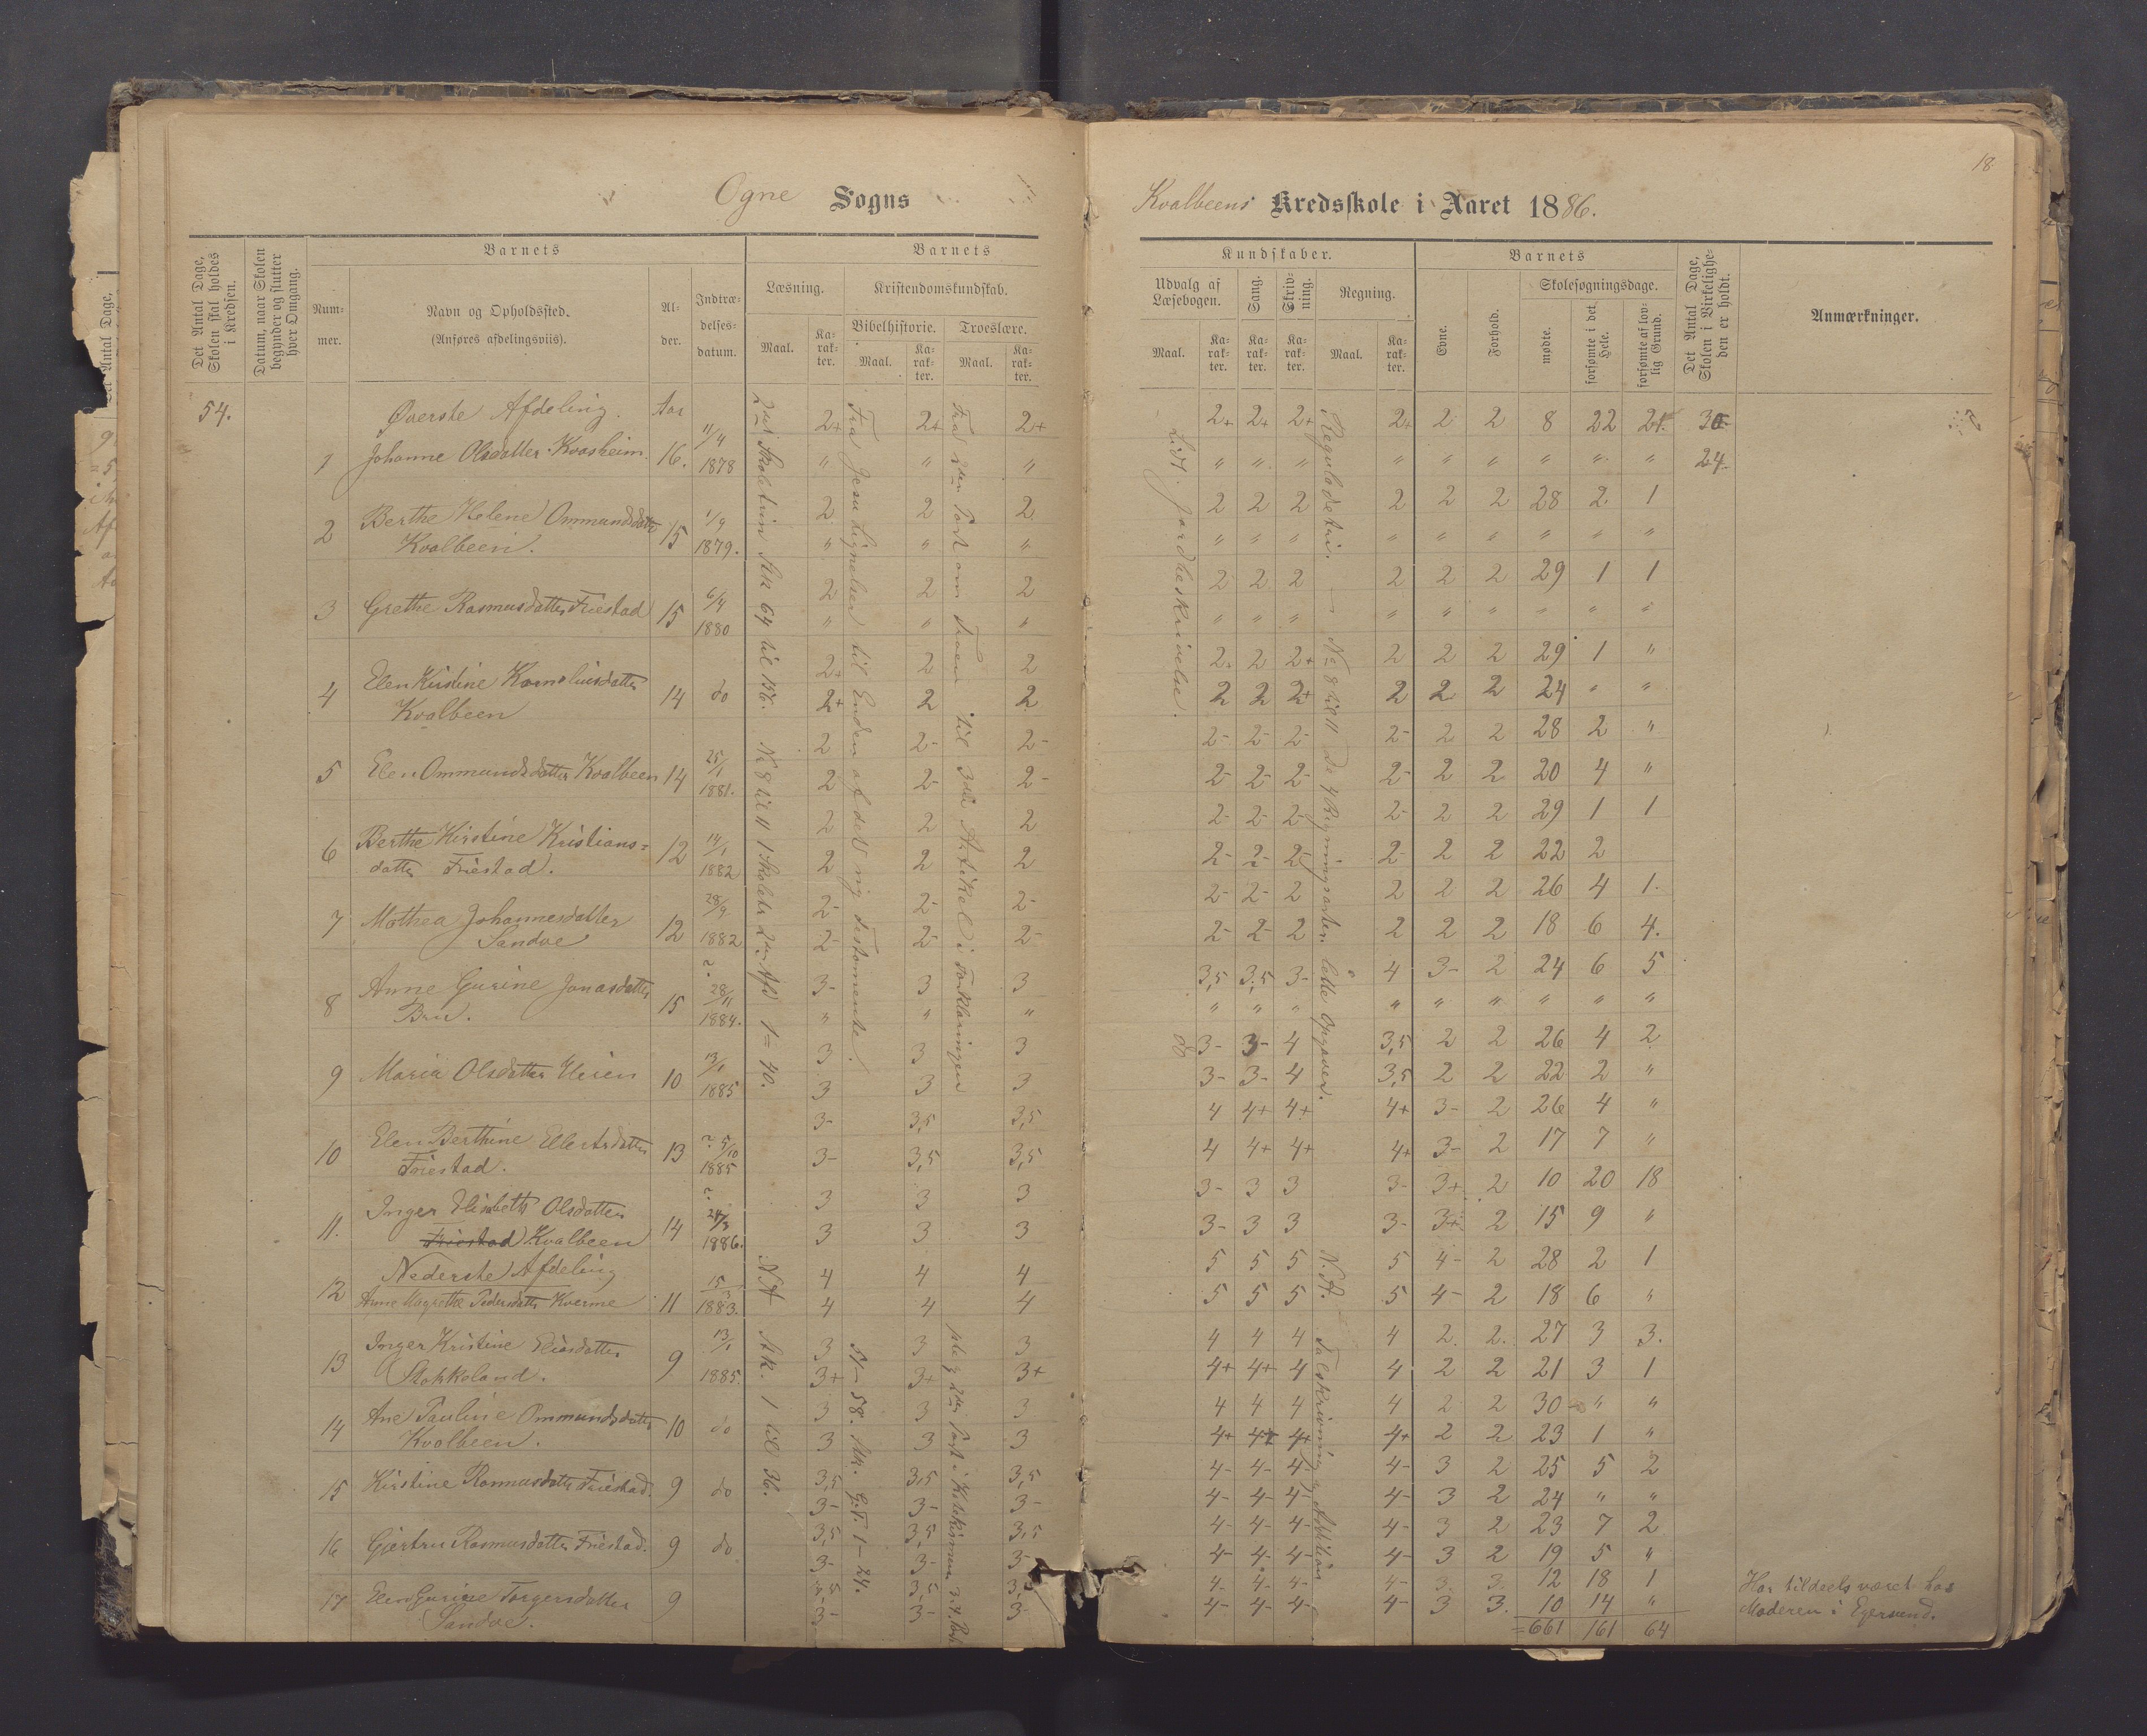 18
Ogne Sogns
Kvalbeens Kredsskole i Aaret 1886.
Det Antal Dage, Skolen skal holdes i Kredsen.
Datum, naar Skolen begynder og slutter hver Omgang.
Barnets
Nummer.
Navn og Opholdssted.
(Anføres afdelingsviis).
Alder.
Indtrædelsesdatum.
Barnets
Læsning.
Kristendomskundskab.
Bibelhistorie. Troeslære.
Maal. Karakter. Maal. Karakter. Maal. Karakter.
Kundskaber.
Udvalg af Læsebogen.
Sang.
Skrivning.
Regning.
Maal. Karakter. Karakter. Karakter. Maal. Karakter.
Barnets
Evne.
Forhold.
Skolesøgningsdage.
mødte.
forsømte i det Hele.
forsømte af lovlig Grund.
Det Antal Dage, Skolen i Virkeligheden er holdt.
Anmærkninger.
54. Øverste Afdeling. Aar 2+ 2+ 2+ 2+ 2+ 2+ 2+ 2 2 8 22 21 30
1 Johanne Olsdatter Kvasheim. 16. 11/4 1878 " " " " " " " " " " " " 24
2 Berthe Helene Ommundsdatter 15 1/9 2 2 2 2 2 2 2 2 2 28 2 1
Kvalbeen. 1879. " " " " " " " " " " " "
3 Grethe Rasmusdatter Friestad 15 6/4 2 2 2 2 2 2 2 2 2 29 1 1
1880 " " " " " " " " " " " "
4 Elen Kirstine Korneliusdatter 14 do 2+ 2 2 2 2 2+ 2 2 2 29 1 "
Kvalbeen 2+ 2 2 2 2 2+ 2 2 2 24 " "
5 Elen Ommundsdatter Kvalbeen 14 25/1 2 2- 2- 2- 2- 2- 2- 2 2 28 2 "
1881. 2 2- 2- 2- 2- 2- 2- 2 2 20 4 "
6 Berthe Kirstine Kristians= 12 14/1 2 2 2 2- 2- 2- 2- 2 2 29 1 1
datter Friestad. 1882 2 2 2 2- 2- 2- 2- 2 2 22 2
7 Mathea Johannesdatter 12 28/9 2- 2- 2- 2- 2- 2 2 2 2 26 4 1.
Sandve 1882 2- 2- 2- 2- 2- 2 2 2 2 18 6 4.
8 Anne Gurine Jonasdatter 15 28/11 3- 3 3 3,5 3,5 3- 4 3- 2 24 6 5
Bru. 1884. " " " " " " " " " " " "
9 Maria Olsdatter Heien 10 13/1 3 3 3 3- 3- 4 3,5 2 2 26 4 2
1885 3 3 3 3- 3- 4 3,5 2 2 22 2 "
10 Elen Berthine Ellertsdatter 13 5/10 3- 3,5 3,5 4 4+ 4+ 4+ 3- 2 26 4 "
Friestad. 1885 3- 3,5 3,5 4 4+ 4+ 4+ 3- 2 17 7 "
11. Inger Elisabeth Olsdatter 14 24/3 3 3 3 3- 3 3 3- 3+ 2 10 20 18
Friestad Kvalbeen 1886. 3 3 3 3- 3 3 3- 3+ 2 15 9 "
Nederste Afdeling 4 4 4 5 5 5 5 4- 2 28 2 1
12 Anne Magrethe Pedersdatter Kverme 11 1883. 4 4 4 5 5 5 5 4- 2 18 6 "
13 Inger Kristine Eliasdatter 9 13/1 3 3 3 4 4 4 4 2 2. 27 3 3.
Stokkeland. 1885. 3+ 3+ 3+ 4+ 4+ 4 4 2 2 21 3 1
14 Ane Pauline Ommundsdatter 10 do 3 3 3 4 4 4 4 2 2 30 " "
Kvalbeen. 3 3 3 4+ 4+ 4+ 4+ 2 2 23 1 "
15 Kirstine Rasmusdatter Friestad. 9 do 3,5 3,5 3,5 4- 4- 4- 4- 3 2 25 5 2
3- 3- 3- 4- 4- 4- 4- 3 2 24 " "
16 Gjertru Rasmusdatter Friestad. 9 do 3,5 3,5 3,5 4- 4- 4- 4- 3 2 23 7 2
3- 3- 3- 4- 4- 4- 4- 3 2 19 5 "
17 Elen Gurine Torgersdatter 9 3,5 3,5 4- 4- 4- 4- 3 3 12 18 1 Har tildeels været hos
Sandve. 3- 3- 3 4- 4- 4- 4- 3 3. 10 14 " Moderen i Egersund.
=661 161 64
2det Skoletrin Stk 64 til 136. No 8 til 11 1 Skoletr 2den Afd 1=40.
Fra Jesu Lignelser til Enden af det ny Testamente.
Fra 2den Part om Troen til 3die Artikel i Forklaringen
Lidt Jordbeskrivelse.
do
Reguladetri. No 8 til 11 De 4 Regningsarter. lette Opgaver.
N. A. Stk. 1 til 36.
N- 58. Stk. G. T. 1-24.
2den Part i Katekismen 3. 4. Part
N. A. Talskrivning, Addition